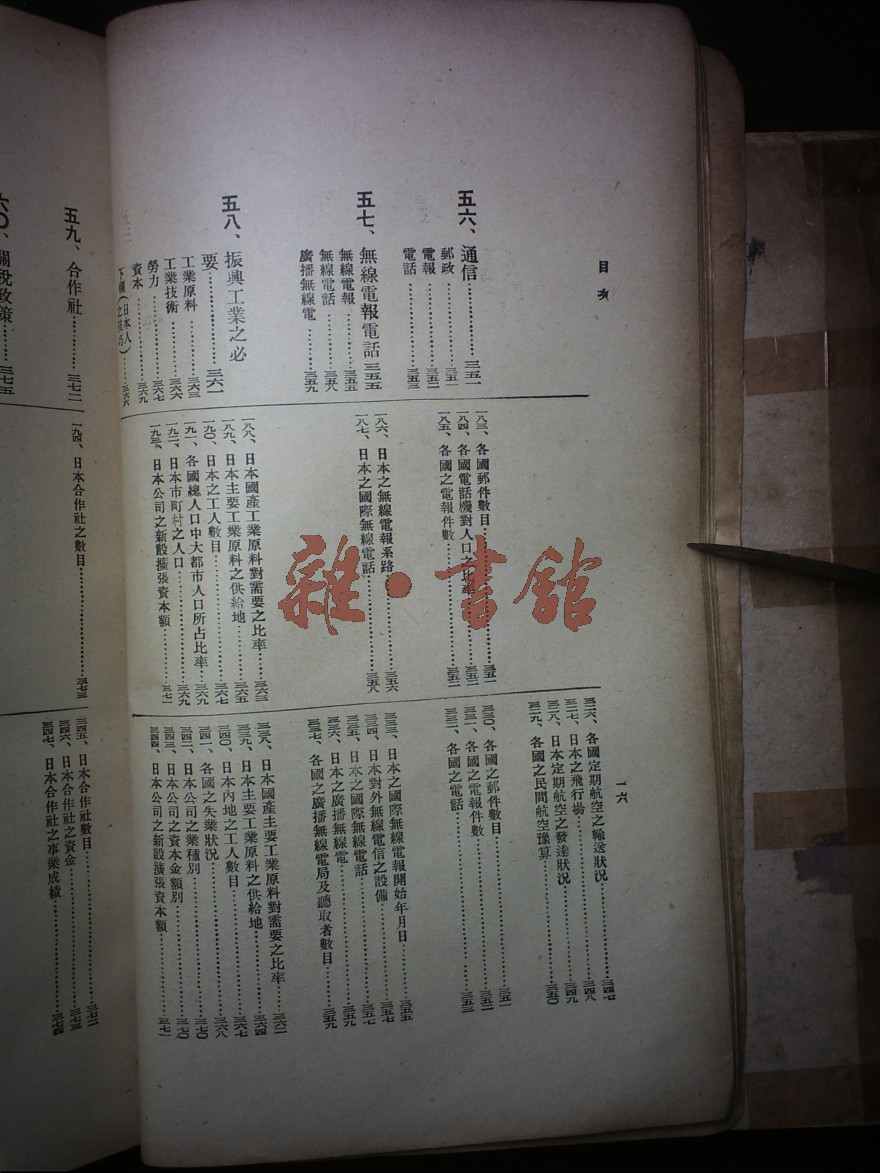 目次
一六
五六、通信……三五一
郵政……三五一
電報……三五二
電話……三五三
五七、無線電報電話 三五五
無線電報……三五五
無線電話……三五八
廣播無線電……三五九
五八、振興工業之必
要……三六一
工業原料……三六三
工業技術……三六六
勞力……三六七
資本……三六九
一八三、各國郵件數目……三五二
一八四、各國電話機對人口之比率……三五二
一八五、各國之電報件數……三五二
一八六、日本之無線電報系路……三五六
一八七、日本之國際無線電話……三五八
一八八、日本國產工業原料對需要之比率……三六三
一八九、日本主要工業原料之供給地……三六五
一九〇、日本之工人數目……三六七
一九一、各國總人口中大都市人口所占比率……三六九
一九二、日本市町村之人口……三六九
一九三、日本公司之新設擴張資本額……三七一
三二六、各國定期航空之輸送狀況……三四七
三二七、日本之飛行場……三四八
三二八、日本定期航空之發達狀況……三四九
三二九、各國之民間航空豫算……三五〇
三三〇、各國之郵件數目……三五一
三三一、各國之電報件數……三五二
三三二、各國之電話……三五三
三三三、日本之國際無線電報開始年月日……三五五
三三四、日本對外無線電信之設備……三五七
三三五、日本之國際無線電話……三五七
三三六、日本之廣播無線電……三五九
三三七、各國之廣播無線電局及聽取者數目……三五九
三三八、日本國產主要工業原料對需要之比率……三六二
三三九、日本主要工業原料之供給地……三六四
三四〇、日本內地之工人數目……三六七
三四一、各國之失業狀況……三六八
三四二、日本公司之業種別……三七〇
三四三、日本公司之資本金額別……三七〇
三四四、日本公司之新設擴張資本額……三七一
五九、合作社……三七二
六〇、關稅政策……三七五
一九四、日本合作社之數目……三七三
三四五、日本合作社數目……三七二
三四六、日本合作社之資金……三七三
三四七、日本合作社之事業成績……三七四
雜·書館